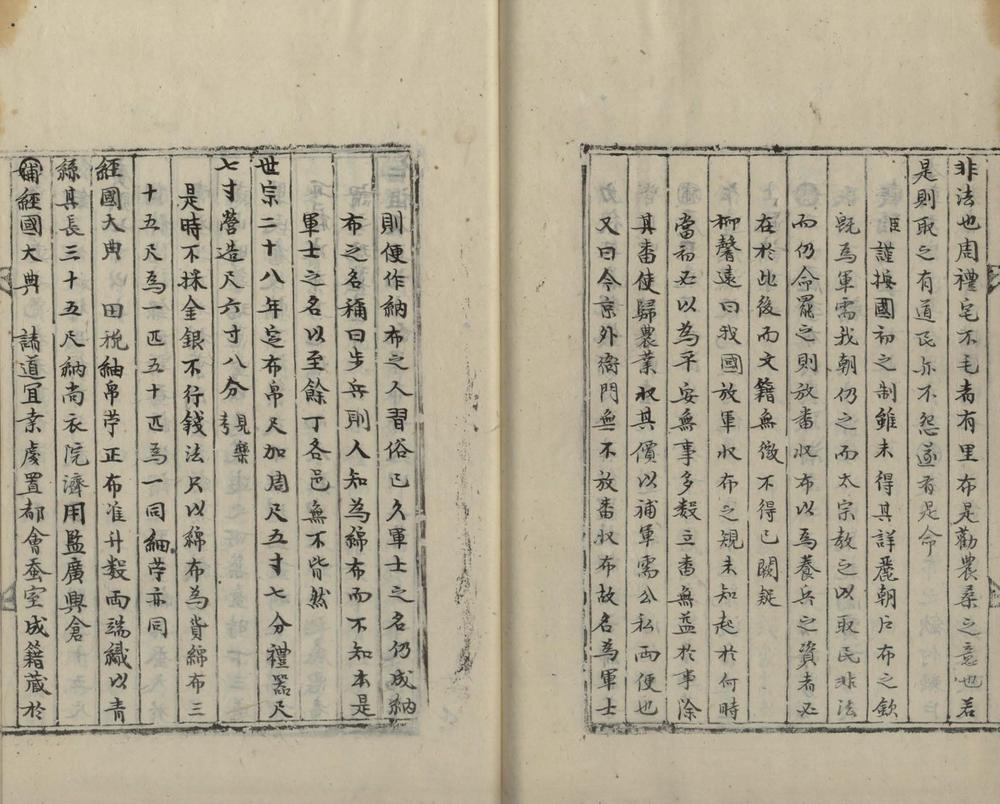 非法也周禮宅不毛者有里布是勸農桑之意也若
是則取之有道民亦不怨遂有是命
臣謹按國初之制雖未得其詳麗朝戶布之斂
旣為軍需我朝仍之而太宗敎之以取民非法
而仍命罷之則放番收布以為養兵之資者必
在於此後而文籍無徵不得已闕疑
柳馨遠曰我國放軍收布之規未知起於何時
當初必以為平安無事多數立番無益於事除
其番使歸農業收其價以補軍需公私兩便也
又曰今京外衙門無不放番收布故名為軍士
則便作納布之人習俗已久軍士之名仍成納
布之名稱曰步兵則人知為綿布而不知本是
軍士之名以至餘丁各邑無不皆然
世宗二十八年定布帛尺加周尺五寸七分禮器尺
七寸營造尺六寸八分見樂考
是時不採金銀不行錢法只以綿布為貨綿布三
十五尺為一匹五十匹為一同紬苧亦同
經國大典 田稅紬帛苧正布准升數兩端織以靑
絲具長三十五尺納尚衣院濟用監廣興倉
補經國大典 諸道宜桑處置都會蚕室成籍藏於